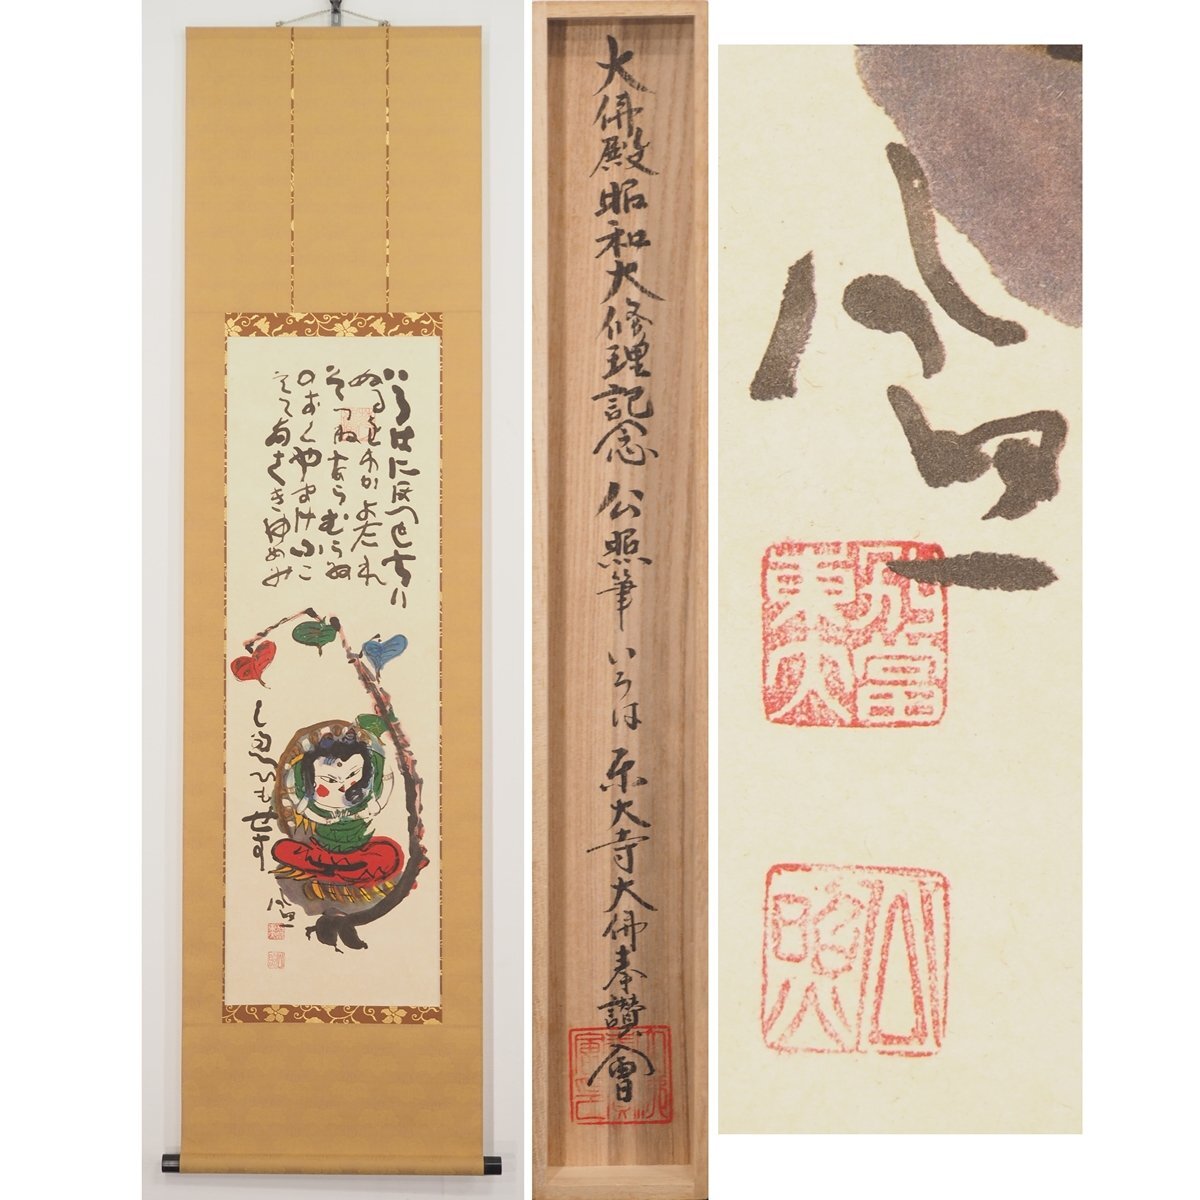 いろはにほへとちり
ぬるをわかよたれ
そつねならむうゐ
のおくやまけふこ
えてあさきゆめみ
しゑひもせす
公照
大佛殿昭和大修理記念 公照筆 いろは 東大寺大佛奉讃會
公照
別當
東大
公照